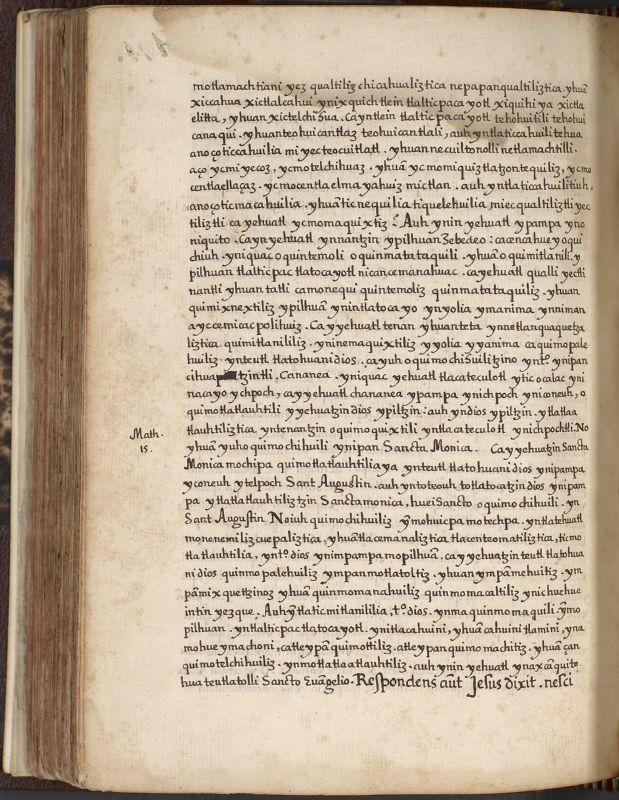 motlamachtiani yez qualtiliz chicahualiztica nepapan qualtiliztica. yhuā
xiccahua xictlalcahui ynixquich tlein tlalticpacayotl xiquihiya xictla
elitta, yhuan xictelchihua. Cayntlein tlalticpacayotl tehohuitili tehohui
canaqui. yhuanteohuicantlaz teohuicantlali, auh yntlaticcahuili tehua
anoçoticcahuilia miyec teocuitlatl. yhuan necuiltonolli netlamachtilli.
aço ycmiyecoz, ycmotelchihuaz. yhuā yc momiquiztlatzontequiliz, ycmo
centlaellaçaz. ycmocentlaelmayahuiz mictlan. auh yntlaticcahuilitiuh.
anoçoticmacahuilia. yhuāticnequilia tiquelehuilia miec qualtiliztli yec
tiliztli ca yehuatl ycmomaquixtiz. Auh ynin yehuatl ypampa yno
niquito. Cayn yehuatl ynnantzin ypilhuan Zebedeo: cacencahueyoqui
chiuh. yniquac oquintemoli oquinmatataquili. yhuā oquimitlanili. y
pilhuan tlalticpactlatocayotl nican cemanahuac. ca yehuatl qualli yectli
nantli yhuan tatli camonequi quintemoliz quinmatataquiliz. yhuan
quimixnextiliz ypilhuā ynintlatocayo ynyolia ymanima ynniman
ayc cemicac polihuiz. Cayyehuatl tenan yhuanteta ynnetlanquaquetza
liztica. quimitlanililiz. yninemaquixtiliz yyolia yyanima ca quimopale
huiliz ynteutl tlatohuani dios. cayuh oquimochihuilitzino ynto. ynipan
cihuapiltzintli. Cananea. yniquac yehuatl tlacateculotl ytic ocalac yni
nacayo ychpoch, cayyehuatl chananea ypampa ynichpoch yniconeuh, o
quimotlatlauhtili yyehuatzin dios ypiltzin: auh yndios ypiltzin. ytlatlaa
tlauhtiliztica yntenantzin oquimoquixtili yntlacateculotl ynichpochtli. No
yhuā yuhoquimochihuili ynipan Sancta Monica. Cayyehuatzin Sancta
Monica mochipa quimotlatlauhtiliaya ynteutl tlatohuani dios ynipampa
yconeuh ytelpoch Sant Augustin. auh yntoteouh totlatocatzin dios ynipam
pa ytlatlatlauhtiliztzin Sancta monica, huei Sancto oquimochihuili. yn
Sant Augustin Noiuh quimochihuiliz ȳmohuicpa motechpa. yntlatehuatl
monenemilizcuepaliztica. yhuātlacemanaliztica tlacenteomatiliztica, ticmo
tlatlauhtilia, ynto. dios ynimpampa mopilhuā. cayyehuatzin teutl tlatohua
ni dios quinmopalehuiliz ympanmotlatoltiz. yhuan ympāmehuitiz. ym
pāmixquetzinoz yhuā quinmomanahuiliz quinmomacaltiliz ynichuehue
intin yezque. Auh ȳtlaticmitlanililia, to. dios. ynma quinmomaquili. ȳmo
pilhuan. yntlalticpactlatocayotl. ynitlacahuini, yhuā cahuini tlamini, yna
mohueymachoni, catleypā quimottiliz. atleypan quimomachitiz. yhuā çan
quimotelchihuiliz. ynmotlatlaatlauhtiliz. auh ynin yehuatl ynaxcāquito
hua teutlatolli Sancto Euāgelio. Respondens aūt Jesus dixit. nesci
Math.
15.